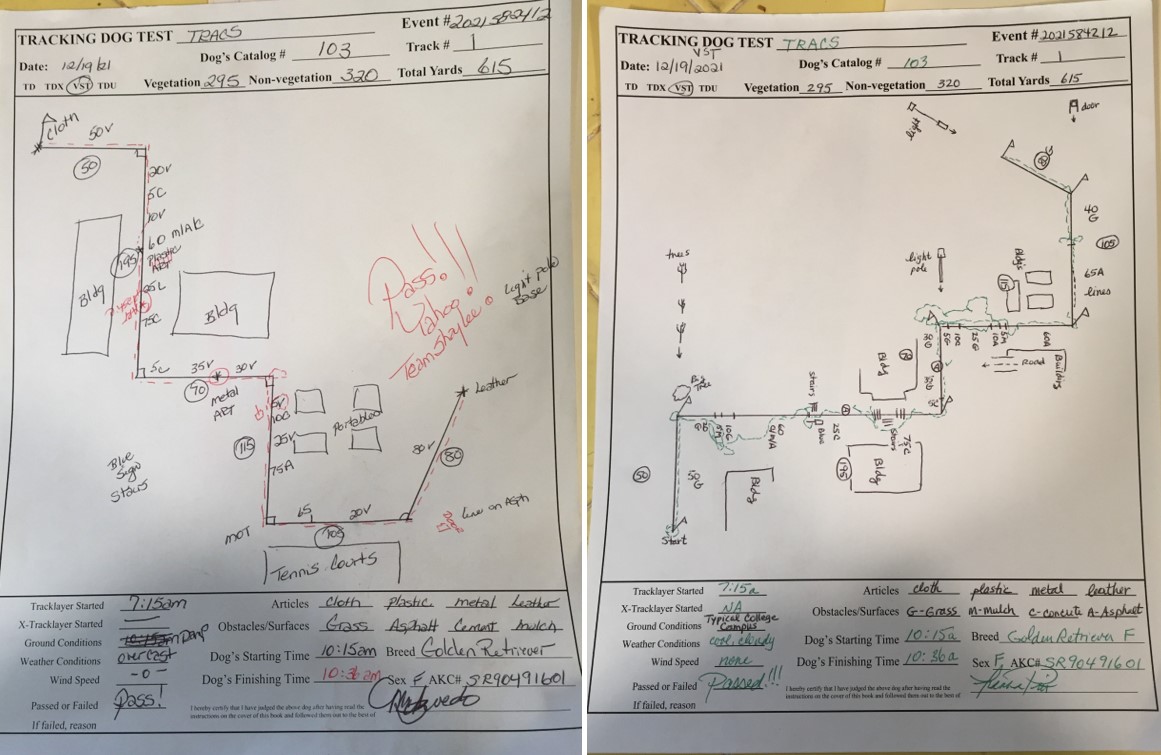 TRACKING DOG TEST TRACS Event #2021582412
Date: 12/19/21 Dog's Catalog # 103 Track # 1
TD TDX VST TDU Vegetation 295 Non-vegetation 320 Total Yards 615
Cloth
50V
50
20V
5C
10V
60 M/A/C
Plastic
ART
195
Bldg
Bldg
75C
Pass!!!
Yahoo!
Team Shaylee
Light pole
Base
5C 35V 30V
70
metal
ART
5V
10C
25V
75A
115
Portables
Leather
80V
80
Blue
Sign
Stairs
MOT
65 20V
105
Line on Asph
Tennis Courts
Tracklayer Started 7:15am Articles Cloth plastic metal Leather
X-Tracklayer Started — Obstacles/Surfaces Grass Asphalt Cement mulch
Ground Conditions Damp
Weather Conditions overcast Dog's Starting Time 10:15am Breed Golden Retriever
Wind Speed -0- Dog's Finishing Time 10:36am Sex F AKC# SR90491601
Passed or Failed Pass! I hereby certify that I have judged the above dog after having read the
instructions on the cover of this book and followed them out to the best of
If failed, reason
TRACKING DOG TEST TRACS Event #2021584212
VST
Date: 12/19/2021 Dog's Catalog # 103 Track # 1
TD TDX VST TDU Vegetation 295 Non-vegetation 320 Total Yards 615
light
door
80
40
G
105
65A
lines
trees
light
pole
Bldg's
115
30G
5G
10C
25G
10A
5M
60A
Road
Building
Bldg
70
5C
Big
Tree
stairs
Blue
25C
stairs
75C
10G
60
C/M/A
50
50
G
Bldg
195
Bldg
Start
Tracklayer Started 7:15a Articles cloth plastic metal leather
X-Tracklayer Started NA Obstacles/Surfaces G-Grass m-mulch c-concrete A-Asphalt
Ground Conditions Typical College Campus
Weather Conditions cool, cloudy Dog's Starting Time 10:15a Breed Golden Retriever F
Wind Speed none Dog's Finishing Time 10:36a Sex F AKC# SR90491601
Passed or Failed Passed!!! I hereby certify that I have judged the above dog after having read the
instructions on the cover of this book and followed them out to the best of
If failed, reason